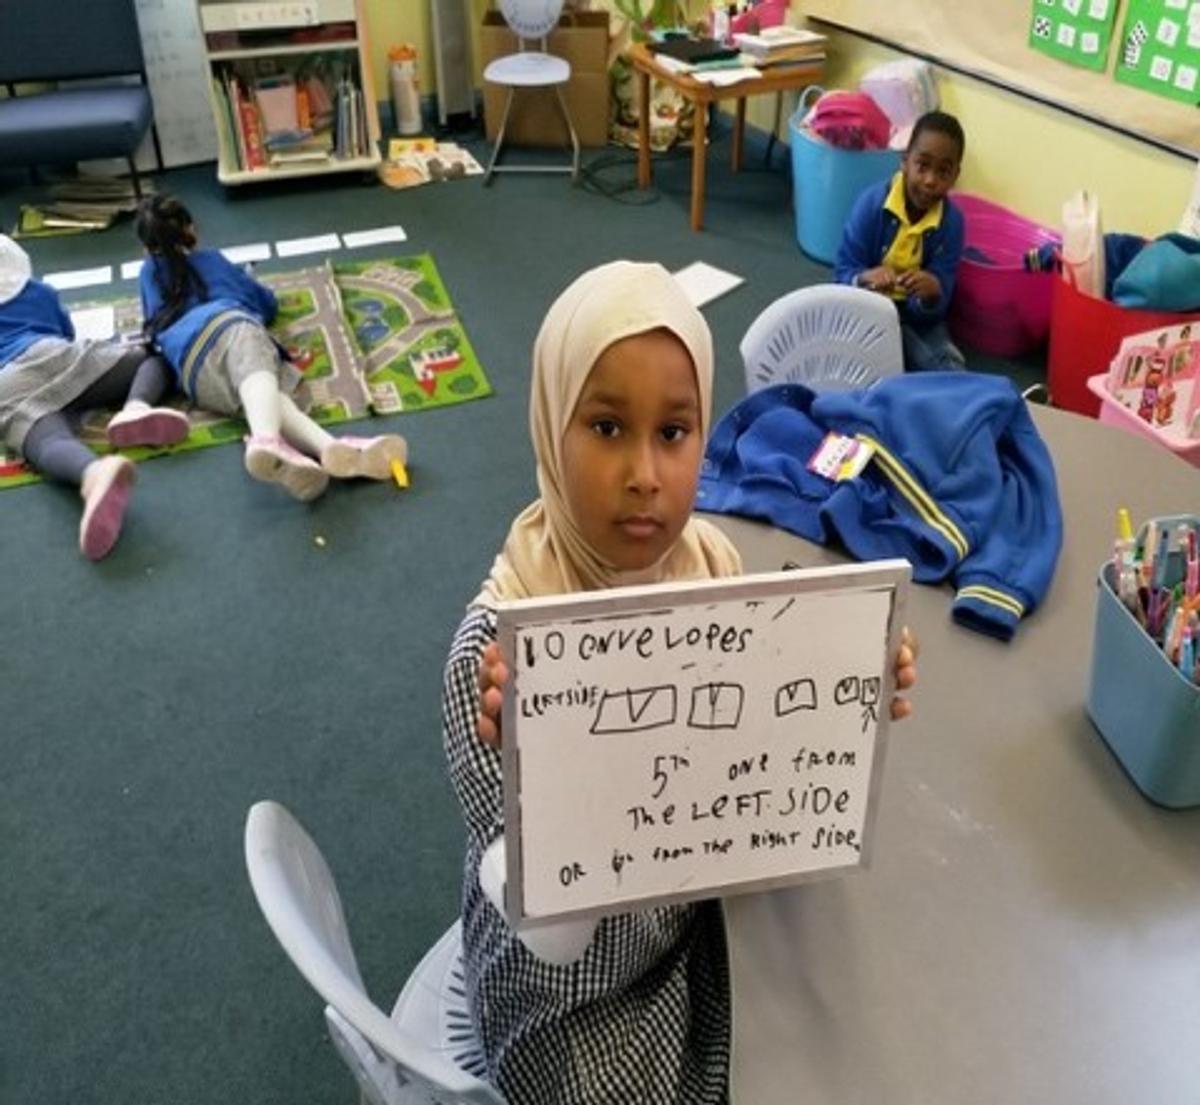 10 envelopes
LEFT SIDE
5th one from
The LEFT SIDE
OR 6th from The Right Side